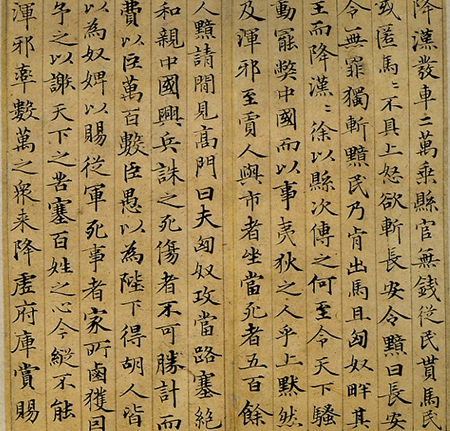 降漢發車二萬乘縣官無錢從民貰馬民
或匿馬〻不具上怒欲斬長安令黯曰長安
令無罪獨斬黯民乃肯出馬且匈奴畔其
主而降漢〻徐以縣次傳之何至令天下騷
動罷獘中國而以事夷狄之人乎上默然
及渾邪至賈人與市者坐當死者五百餘
人黯請閒見高門曰夫匈奴攻當路塞絕
和親中國興兵誅之死傷者不可勝計而
費以臣萬百數臣愚以為陛下得胡人皆
以為奴婢以賜從軍死事者家所鹵獲因
予之以謝天下之苦塞百姓之心今縱不能
渾邪率數萬之衆来降虛府庫賞賜